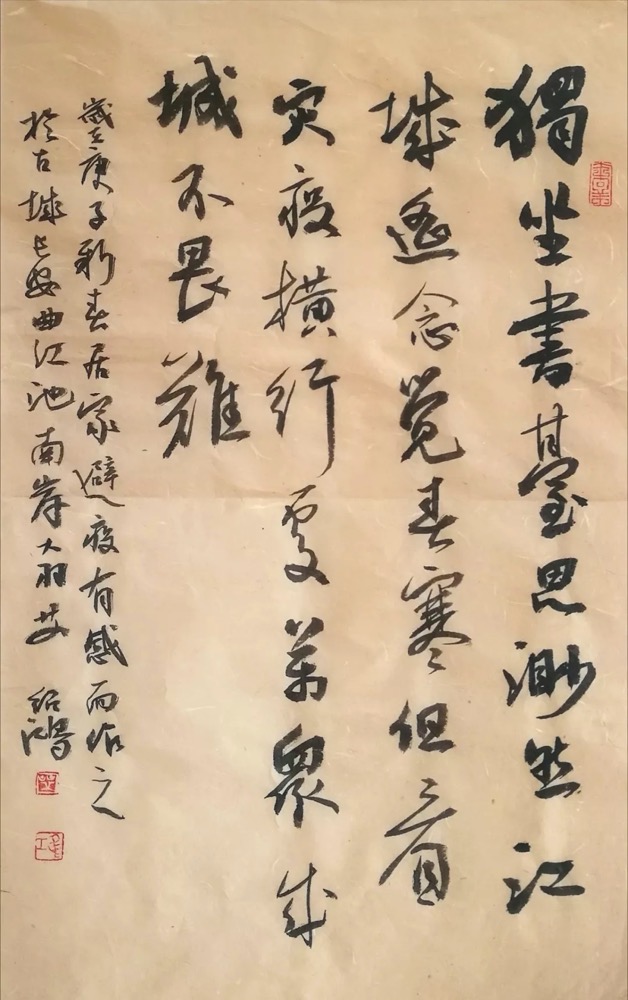 獨坐書臺思渺然江
城遙念覺春寒但看
灾疫橫行處萬眾成
城不畏難
歲在庚子新春居家避疫有感而作之
於古城長安曲江池南岸大羽艾 紹鴻